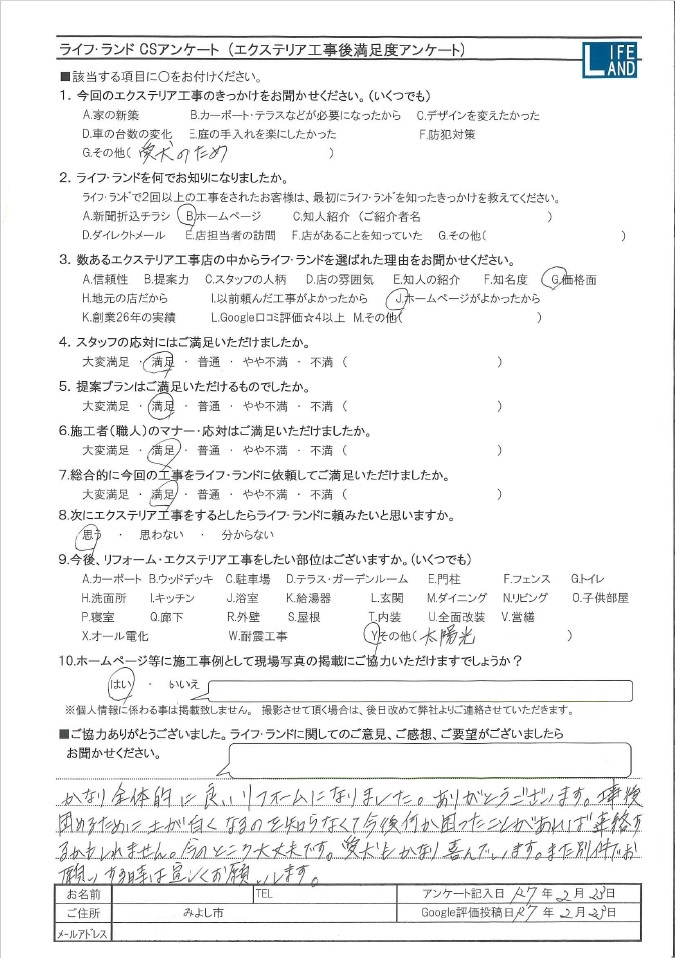 ライフ・ランド CSアンケート（エクステリア工事後満足度アンケート）
LIFE LAND
■該当する項目に○をお付けください。
1. 今回のエクステリア工事のきっかけをお聞かせください。（いくつでも）
A.家の新築 B.カーポート・テラスなどが必要になったから C.デザインを変えたかった
D.車の台数の変化 E.庭の手入れを楽にしたかった F.防犯対策
G.その他( 愛犬のため )
2. ライフ・ランドを何でお知りになりましたか。
ライフ・ランドで2回以上の工事をされたお客様は、最初にライフ・ランドを知ったきっかけを教えてください。
A.新聞折込チラシ B.ホームページ C.知人紹介（ご紹介者名 ）
D.ダイレクトメール E.店担当者の訪問 F.店があることを知っていた G.その他( )
3. 数あるエクステリア工事店の中からライフ・ランドを選ばれた理由をお聞かせください。
A.信頼性 B.提案力 C.スタッフの人柄 D.店の雰囲気 E.知人の紹介 F.知名度 G.価格面
H.地元の店だから I.以前頼んだ工事がよかったから J.ホームページがよかったから
K.創業26年の実績 L.Google口コミ評価☆4以上 M.その他( )
4. スタッフの応対にはご満足いただけましたか。
大変満足 ・ 満足 ・ 普通 ・ やや不満 ・ 不満 （ ）
5. 提案プランはご満足いただけるものでしたか。
大変満足 ・ 満足 ・ 普通 ・ やや不満 ・ 不満 （ ）
6.施工者（職人）のマナー・応対はご満足いただけましたか。
大変満足 ・ 満足 ・ 普通 ・ やや不満 ・ 不満 （ ）
7.総合的に今回の工事をライフ・ランドに依頼してご満足いただけましたか。
大変満足 ・ 満足 ・ 普通 ・ やや不満 ・ 不満 （ ）
8.次にエクステリア工事をするとしたらライフ・ランドに頼みたいと思いますか。
思う ・ 思わない ・ 分からない
9.今後、リフォーム・エクステリア工事をしたい部位はございますか。（いくつでも）
A.カーポート B.ウッドデッキ C.駐車場 D.テラス・ガーデンルーム E.門柱 F.フェンス G.トイレ
H.洗面所 I.キッチン J.浴室 K.給湯器 L.玄関 M.ダイニング N.リビング O.子供部屋
P.寝室 Q.廊下 R.外壁 S.屋根 T.内装 U.全面改装 V.営繕
X.オール電化 W.耐震工事 Y.その他( 太陽光 )
10.ホームページ等に施工事例として現場写真の掲載にご協力いただけますでしょうか？
はい ・ いいえ
※個人情報に係わる事は掲載致しません。 撮影させて頂く場合は、後日改めて弊社よりご連絡させていただきます。
■ご協力ありがとうございました。ライフ・ランドに関してのご意見、ご感想、ご要望がございましたら
お聞かせください。
かなり全体的に良いリフォームになりました。ありがとうございます。工事後
固めるために土が白くなるのを知らなくて今後何か困ったことがあれば連絡す
るかもしれません。今のところ大丈夫です。愛犬もかなり喜んでいます。また別件でお
願いする時は宜しくお願いします。
お名前 TEL アンケート記入日 R7 年 2 月 23日
ご住所 みよし市 Google評価投稿日 R7 年 2 月 23日
メールアドレス